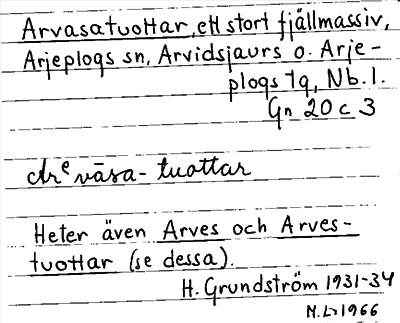 Arvasatuottar, ett stort fjällmassiv,
Arjeplogs sn, Arvidsjaurs o. Arje-
plogs tg, Nb. l.
Gn 20 c 3
-tuottar
Heter även Arves och Arves-
tuottar (se dessa).
H. Grundström 1931-34
1966